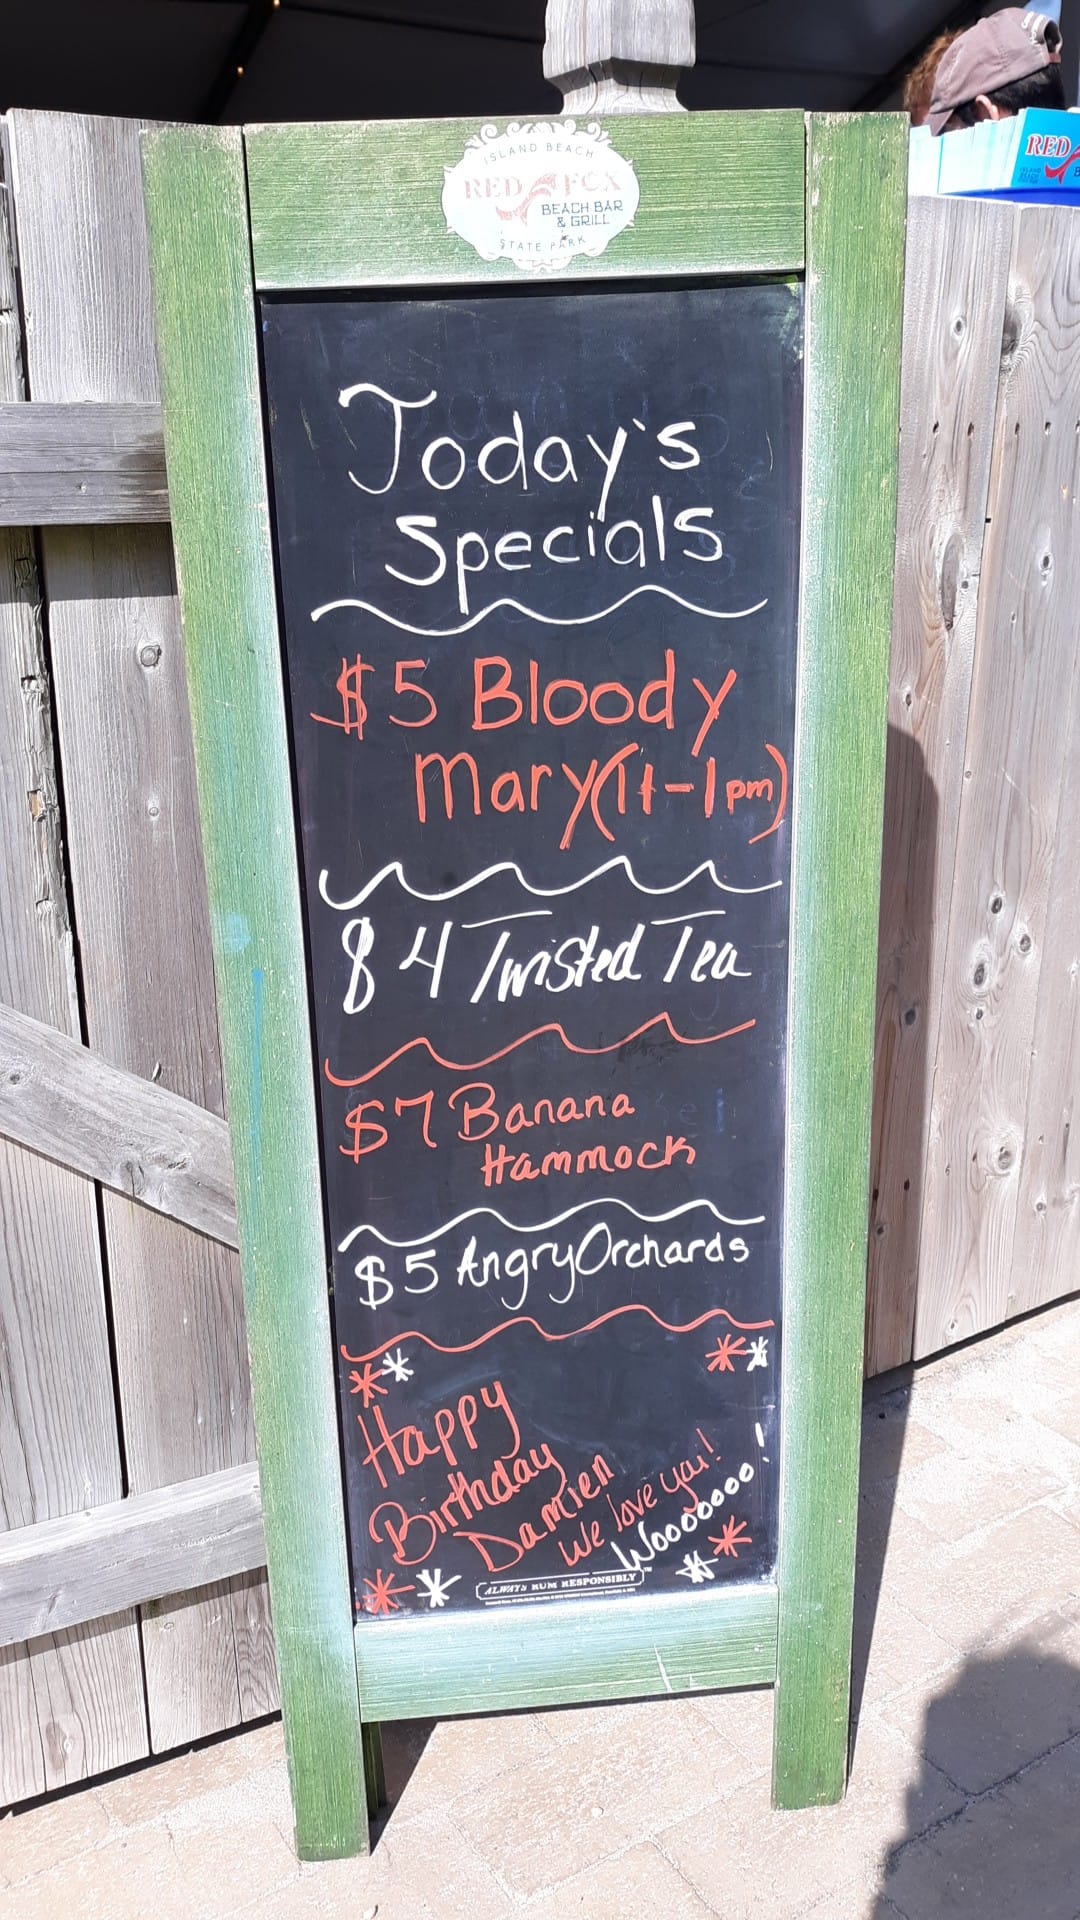 ISLAND BEACH
RED FOX
BEACH BAR
& GRILL
STATE PARK
RED
Today's
Specials
$5 Bloody
Mary (11-1pm)
$4 Twisted Tea
$7 Banana
Hammock
$5 Angry Orchards
Happy
Birthday
Damien
We love you!
Wooooooo!
ALWAYS RUM RESPONSIBLY